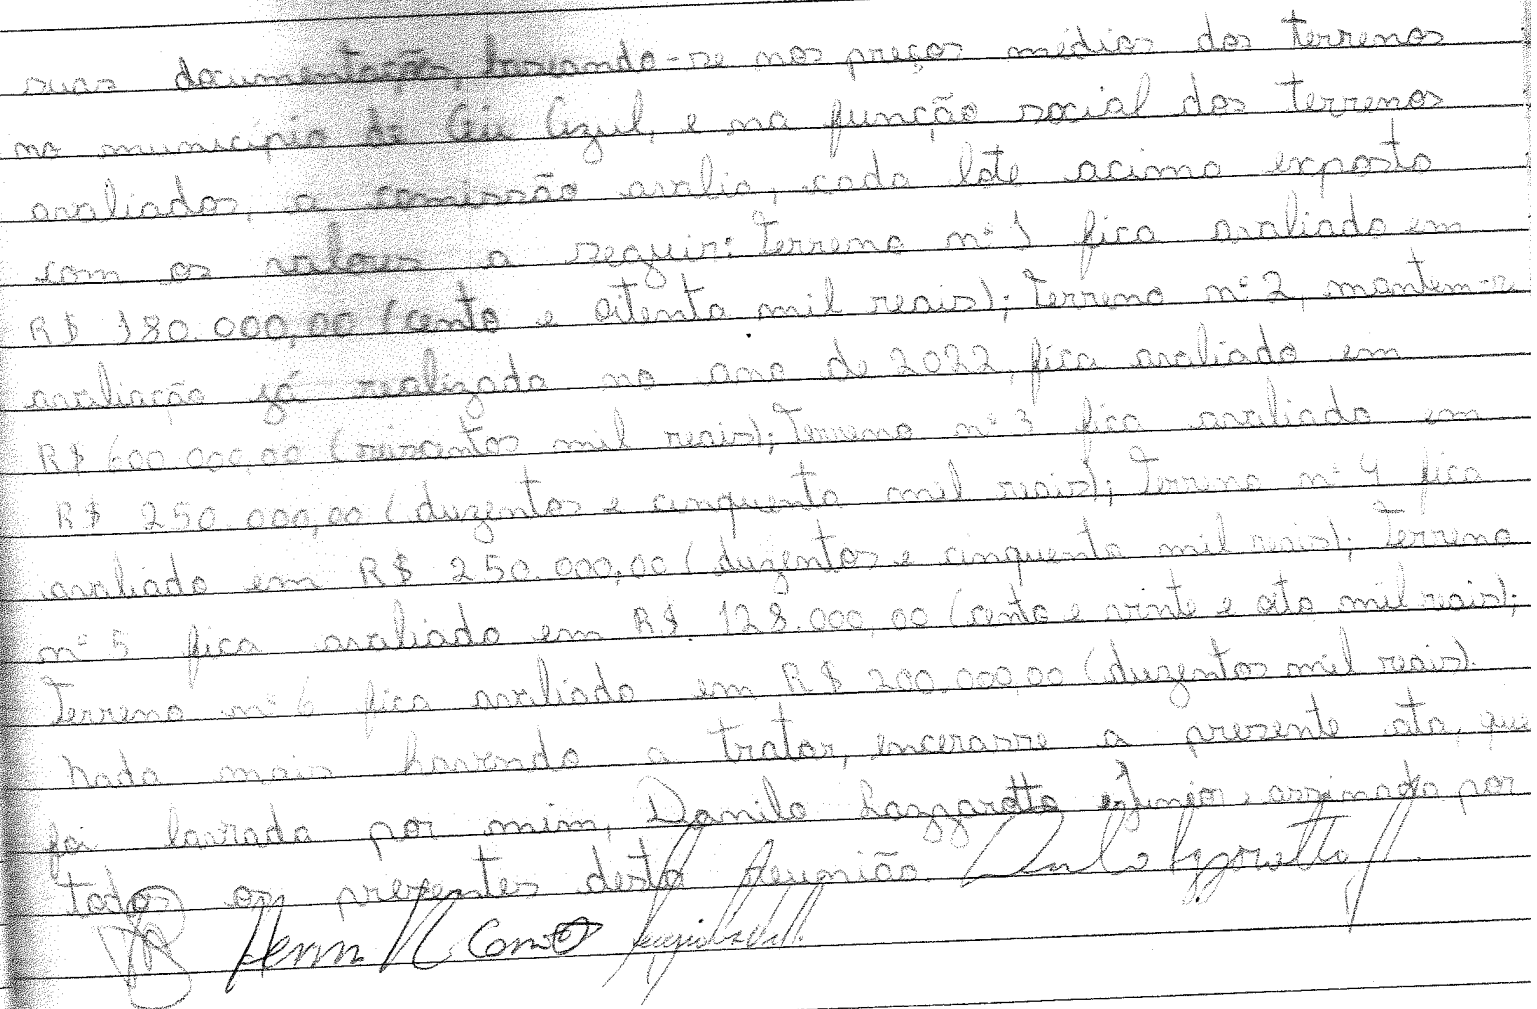 suas documentações, baseando-se nos preços médios dos terrenos
no município de Céu Azul, e na função social dos terrenos
avaliados, a comissão avalia, cada lote acima exposto
com os valores a seguir: Terreno nº 1 fica avaliado em
R$ 180.000,00 (cento e oitenta mil reais); Terreno nº 2, mantem-se
avaliação já realizada no ano de 2022, fica avaliado em
R$ 600.000,00 (seiscentos mil reais); Terreno nº 3 fica avaliado em
R$ 250.000,00 (duzentos e cinquenta mil reais); Terreno nº 4 fica
avaliado em R$ 250.000,00 (duzentos e cinquenta mil reais); Terreno
nº 5 fica avaliado em R$ 128.000,00 (cento e vinte e oito mil reais);
Terreno nº 6 fica avaliado em R$ 200.000,00 (duzentos mil reais).
Nada mais havendo a tratar, encerasse a presente ata, que
foi lavrada por mim, Danilo Lazzarotto Junior, assinada por
todos os presentes desta Reunião. Danilo Lazzarotto Jr